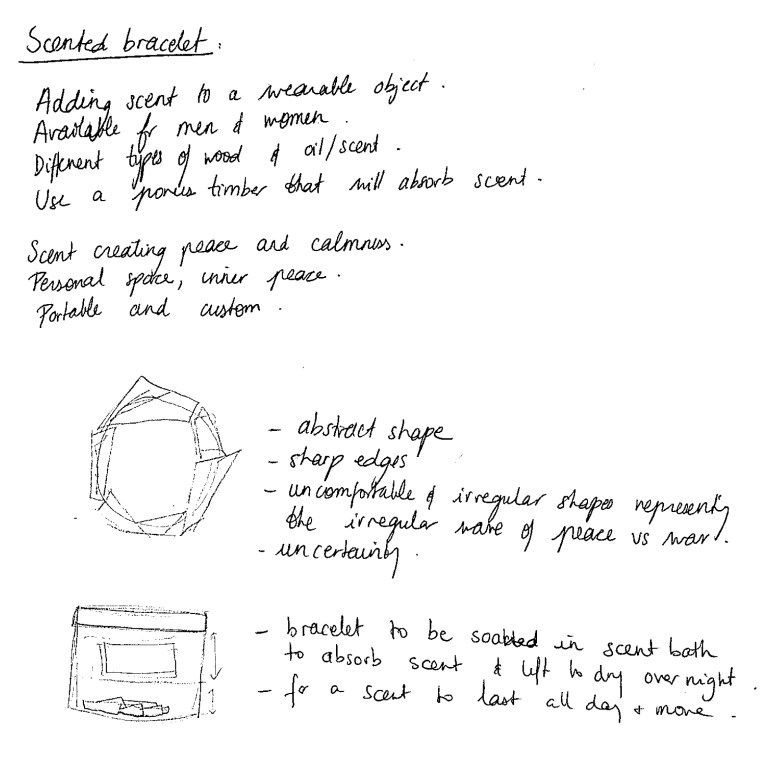 Scented bracelet.
Adding scent to a wearable object.
Available for men & women.
Different types of wood & oil/scent.
Use a porous timber that will absorb scent.
Scent creating peace and calmness.
Personal space, inner peace.
Portable and custom.
- abstract shape
- sharp edges
- uncomfortable & irregular shapes representing
the irregular wave of peace vs war.
- uncertainty.
- bracelet to be soaked in scent bath
to absorb scent & left to dry over night.
- for a scent to last all day + more.